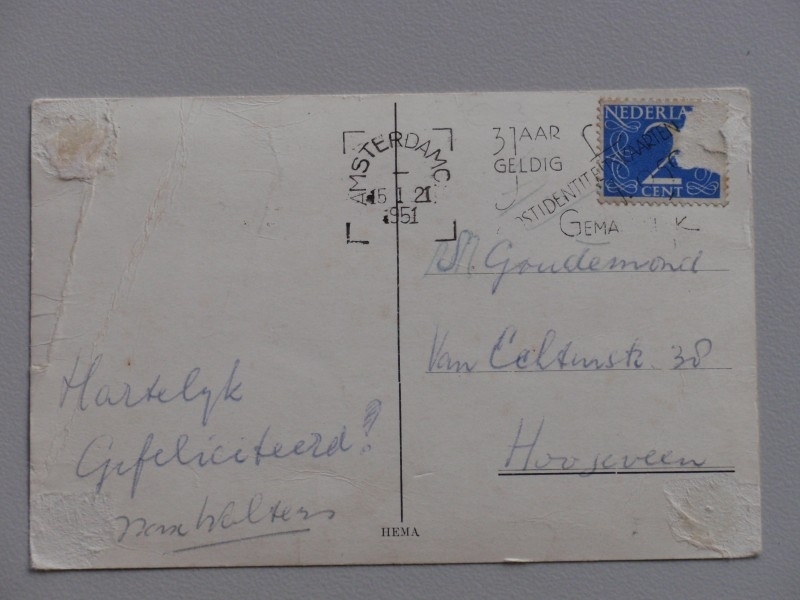 NEDERLA
2
CENT
AMSTERDAM C.
15 1 21
1951
3 JAAR
GELDIG
POSTIDENTITEITSKAARTEN
GEMAK
Goudemond
Van Echtenstr. 38
Hoogeveen
Hartelyk
Gefeliciteerd!
van Wolters
HEMA